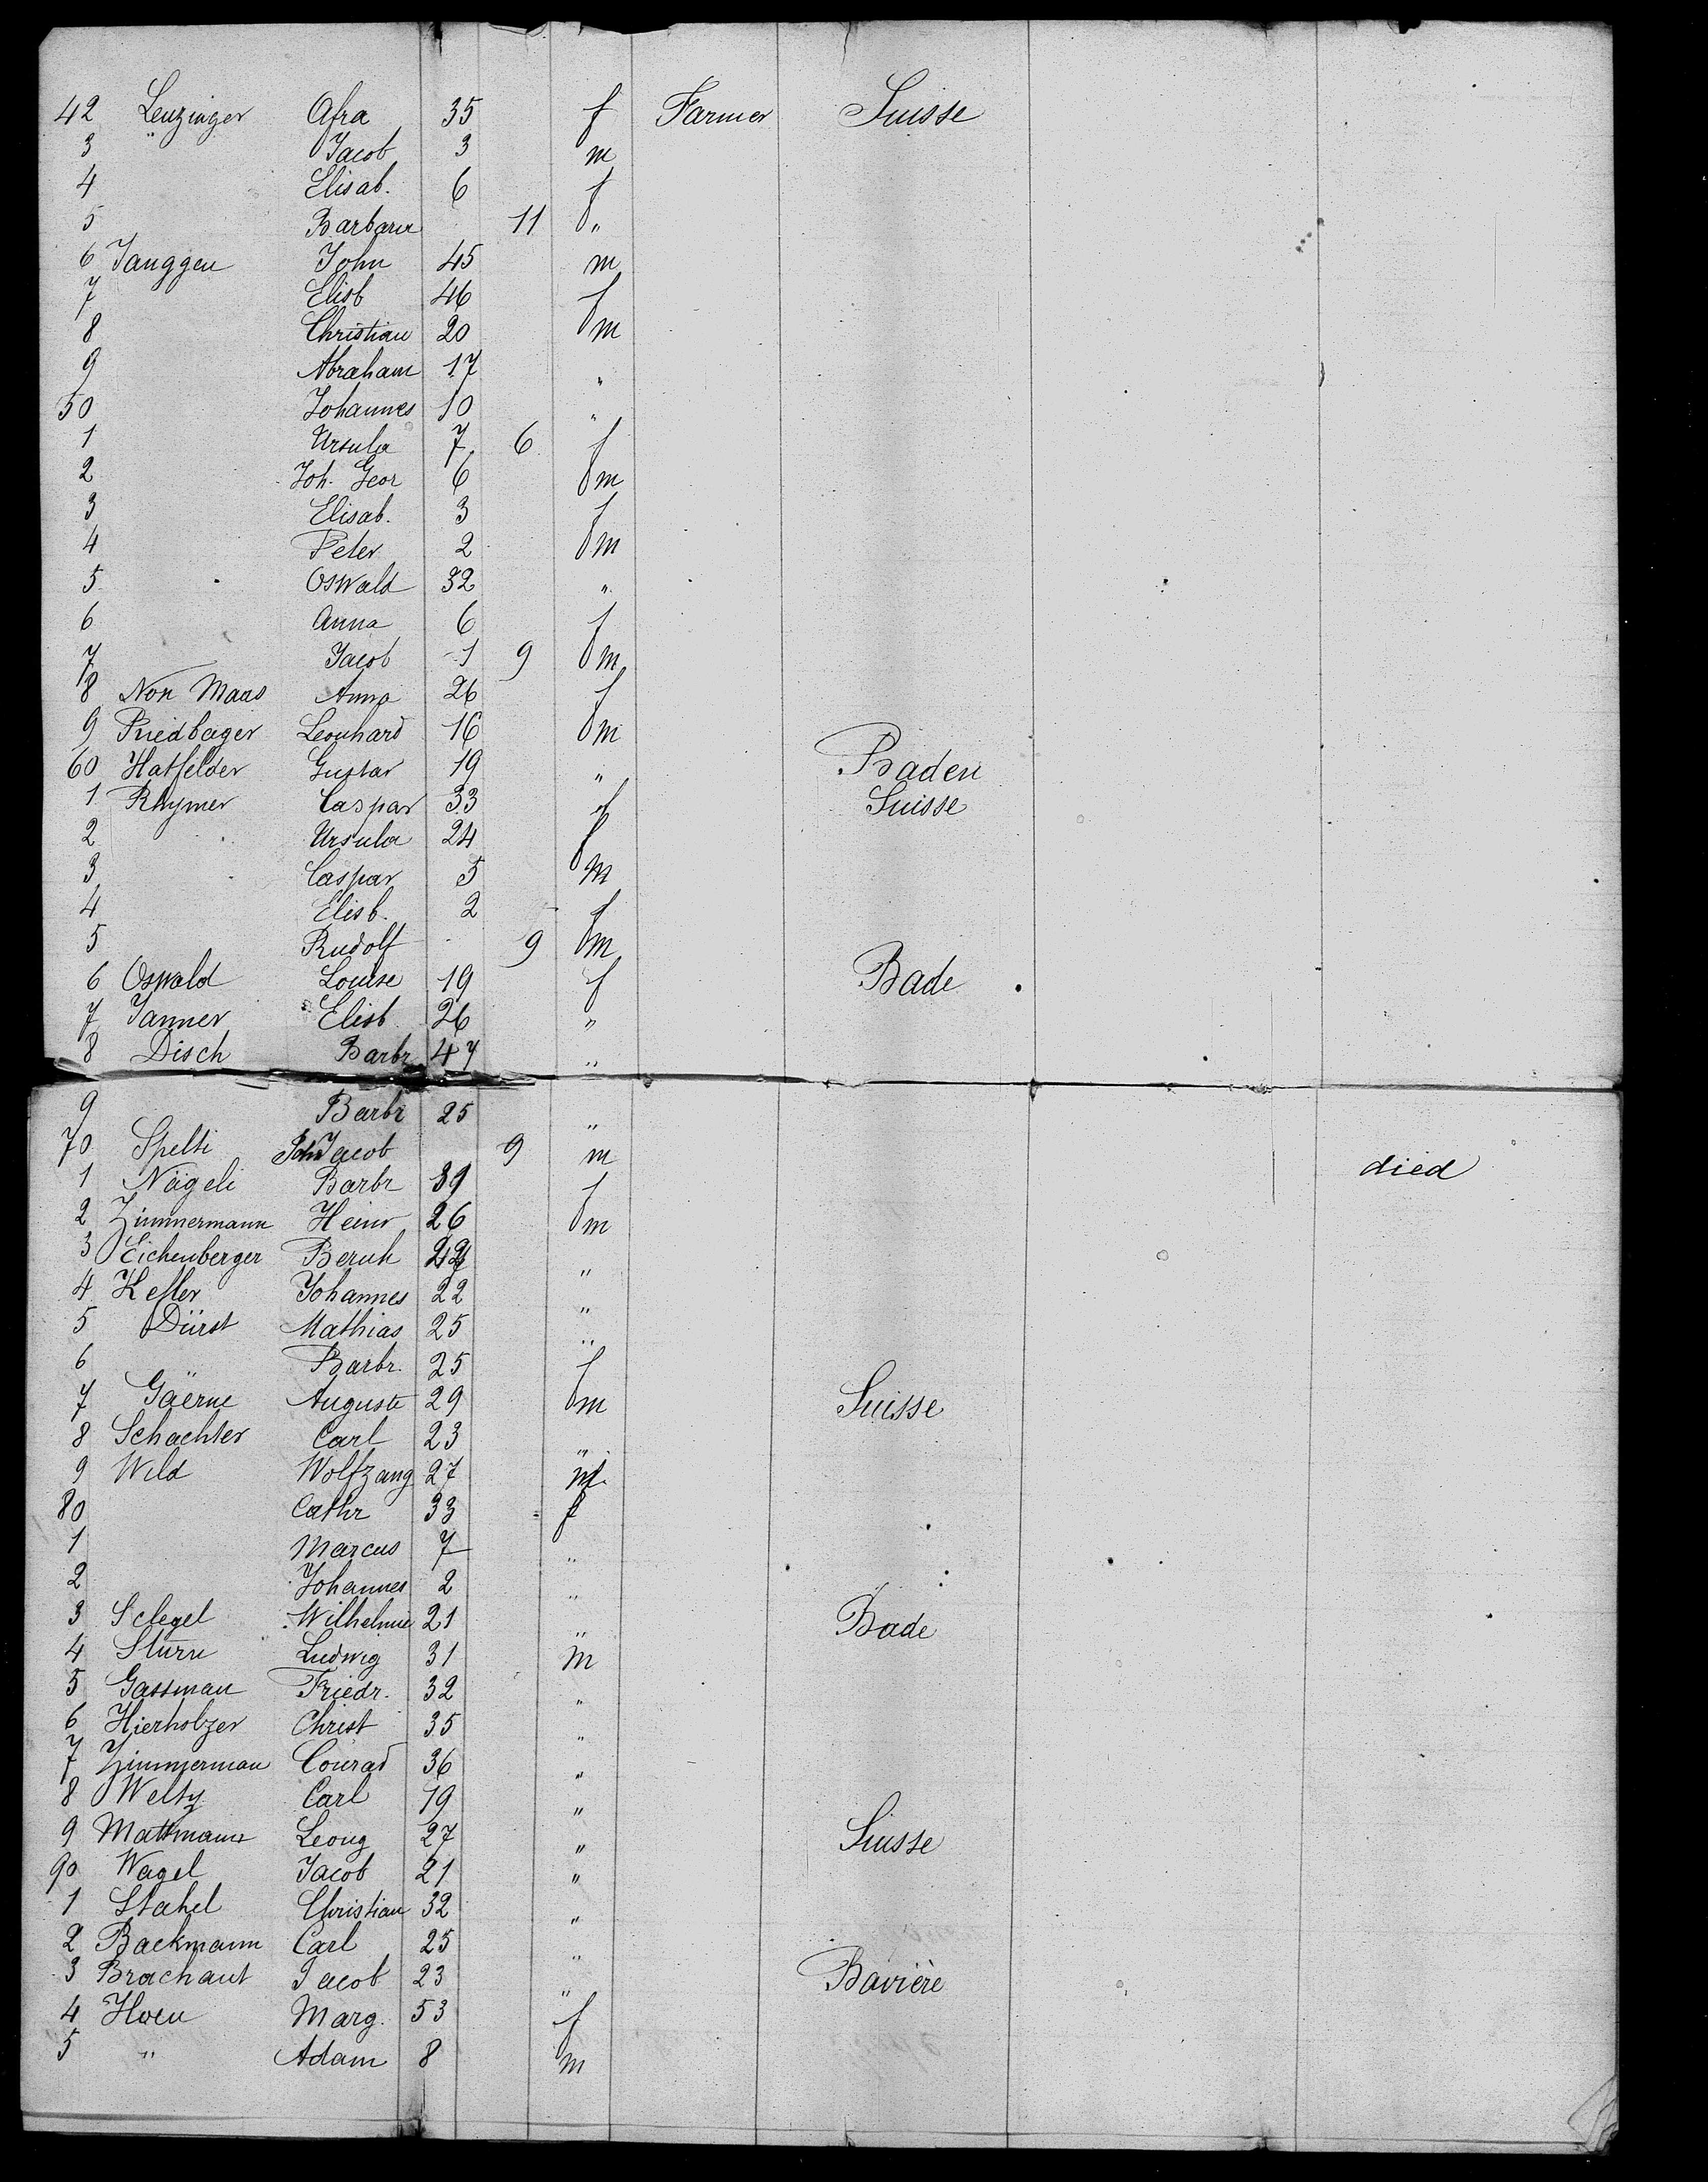 42 Lenzinger Afra 35 f Farmer Suisse
3 " Jacob 3 m
4 Elisab. 6 f
5 Barbara 11 "
6 Janggen John 45 m
7 Elisb 46 f
8 Christian 20 m
9 Abraham 17 "
50 Johannes 10 "
1 Ursula 7 6 f
2 Joh. Geor 6 m
3 Elisab. 3 f
4 Peter 2 m
5 Oswald 32 "
6 Anna 6 f
7 Jacob 1 9 m
8 Non Maas Anna 26 f
9 Riedbager Leonhard 16 m
60 Hatfelder Gustav 19 " Baden
1 Rhymer Caspar 33 Suisse
2 Ursula 24 f
3 Caspar 5 m
4 Elisb. 2 f
5 Rudolf 9 m
6 Oswald Louise 19 f Bade
7 Janner Elisb 26 "
8 Disch Barbr 47 "
9 Barbr 25 "
70 Spelti Jacob 9 m died
1 Nägeli Barbr 39 f
2 Zimmermann Heinr 26 m
3 Eichenberger Bernh "
4 Keller Johannes 22 "
5 Dürst Mathias 25 "
6 Barbr. 25 f
7 Gaërne Auguste 29 m Suisse
8 Schachter Carl 23 "
9 Wild Wolfzang 27 m
80 Cathr 33 f
1 Marcus 7 "
2 Johannes 2 "
3 Sclegel Wilhelmie 21 " Bade
4 Sturn Ludwig 31 m
5 Gassman Friedr. 32 "
6 Hierholzer Christ 35 "
7 Zimmerman Conrad 36 "
8 Welty Carl 19 "
9 Mattmann Leong 27 " Suisse
90 Wagel Jacob 21 "
1 Stahel Christian 32 "
2 Backmann Carl 25 "
3 Brachant Jacob 23 " Bavière
4 Hoen Marg. 53 f
5 " Adam 8 m